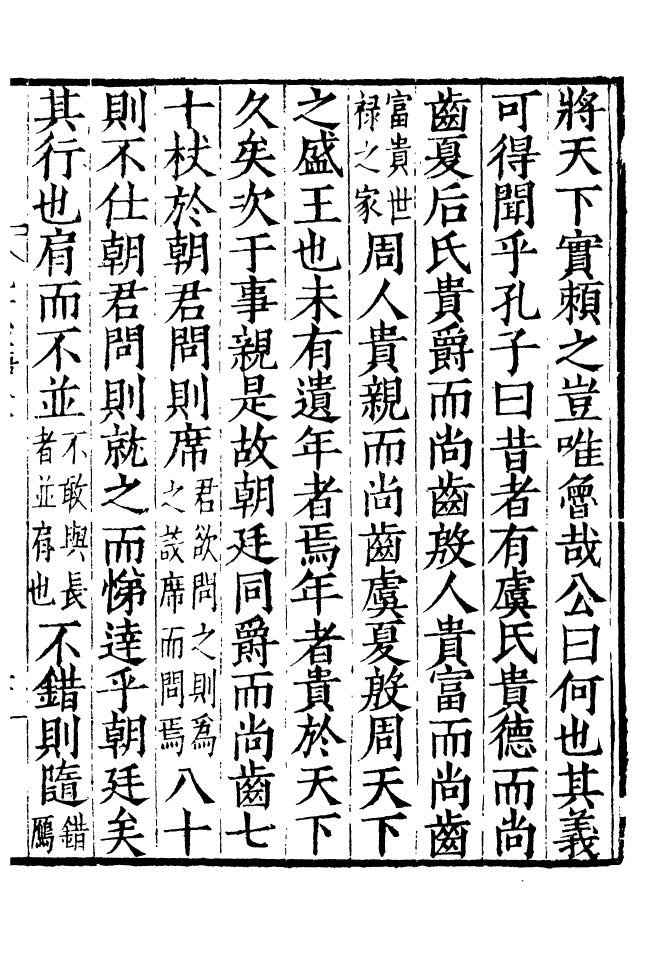 將天下實賴之豈唯魯哉公曰何也其義
可得聞乎孔子曰昔者有虞氏貴德而尚
齒夏后氏貴爵而尚齒殷人貴富而尚齒
富貴世
禄之家
周人貴親而尚齒虞夏殷周天下
之盛王也未有遺年者焉年者貴於天下
久矣次于事親是故朝廷同爵而尚齒七
十杖於朝君問則席
君欲問之則為
之設席而問焉
八十
則不仕朝君問則就之而悌達乎朝廷矣
其行也肩而不並
不敢與長
者並肩也
不錯則隨
錯
鴈